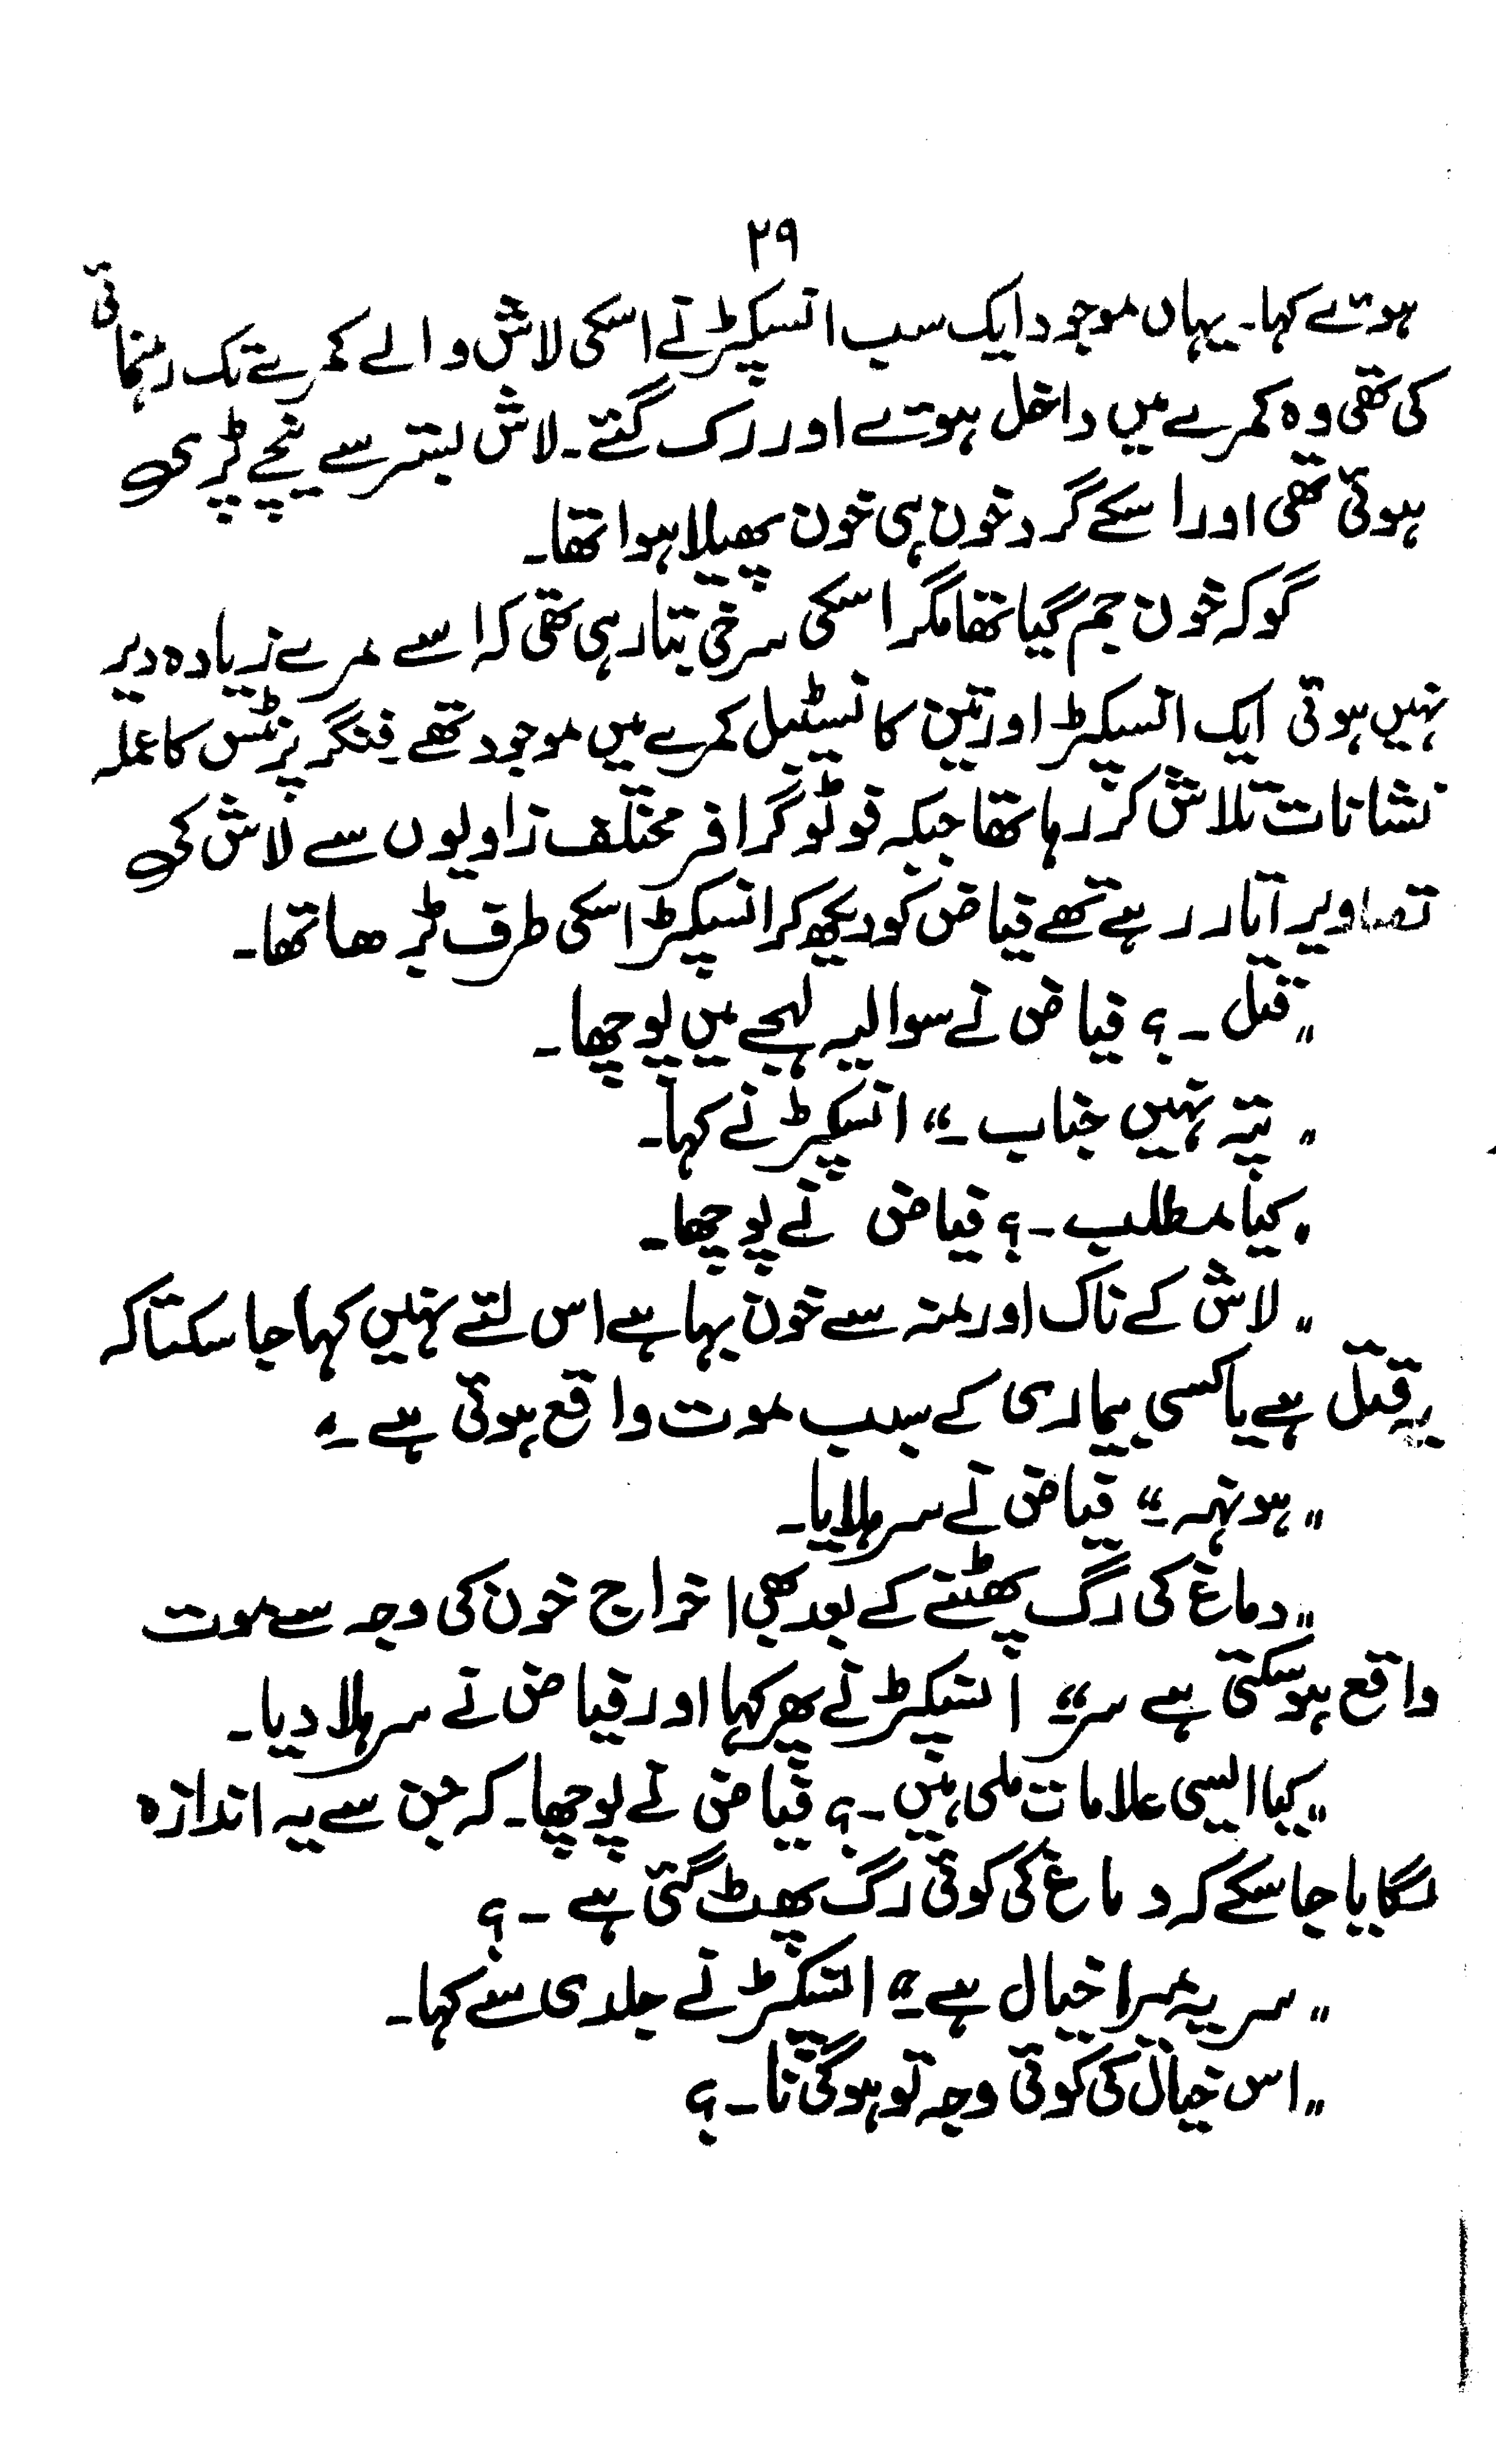 ۲۹
ہوئے کہا۔ یہاں موجود ایک سب انسپکٹر نے اسکی لاش والے کمرے تک رہنمائی
کی تھی وہ کمرے میں داخل ہوئے اور رک گئے۔ لاش بستر سے نیچے پڑی
ہوئی تھی اور اسکے گرد خون ہی خون پھیلا ہوا تھا۔
گو کہ خون جم گیا تھا مگر اسکی سرخی بتا رہی تھی کہ اسے مرے زیادہ دیر
نہیں ہوئی ایک انسپکٹر اور تین کانسٹیبل کمرے میں موجود تھے۔ فنگر پرنٹس کا عملہ
نشانات تلاش کر رہا تھا جبکہ فوٹو گرافر مختلف زاویوں سے لاش کی
تصاویر اتار رہے تھے فیاض کو دیکھ کر انسپکٹر اسکی طرف بڑھا تھا۔
"قتل ۔؟ فیاض نے سوالیہ لہجے میں پوچھا۔
"پتہ نہیں جناب۔" انسپکٹر نے کہا۔
"کیا مطلب ۔؟ فیاض نے پوچھا۔
"لاش کے ناک اور منہ سے خون بہا ہے اس لئے نہیں کہا جا سکتا کہ
یہ قتل ہے یا کسی بیماری کے سبب موت واقع ہوئی ہے۔"
"ہونہہ۔" فیاض نے سر ہلایا۔
"دماغ کی رگ پھٹنے کے بعد بھی اخراج خون کی وجہ سے موت
واقع ہو سکتی ہے سر۔" انسپکٹر نے پھر کہا اور فیاض نے سر ہلا دیا۔
"کیا ایسی علامات ملی ہیں ۔؟ فیاض نے پوچھا۔ کہ جن سے یہ اندازہ
لگایا جا سکے کہ دماغ کی کوئی رگ پھٹ گئی ہے ۔؟
"سر یہ میرا خیال ہے۔" انسپکٹر نے جلدی سے کہا۔
"اس خیال کی کوئی وجہ تو ہو گی نا ۔؟